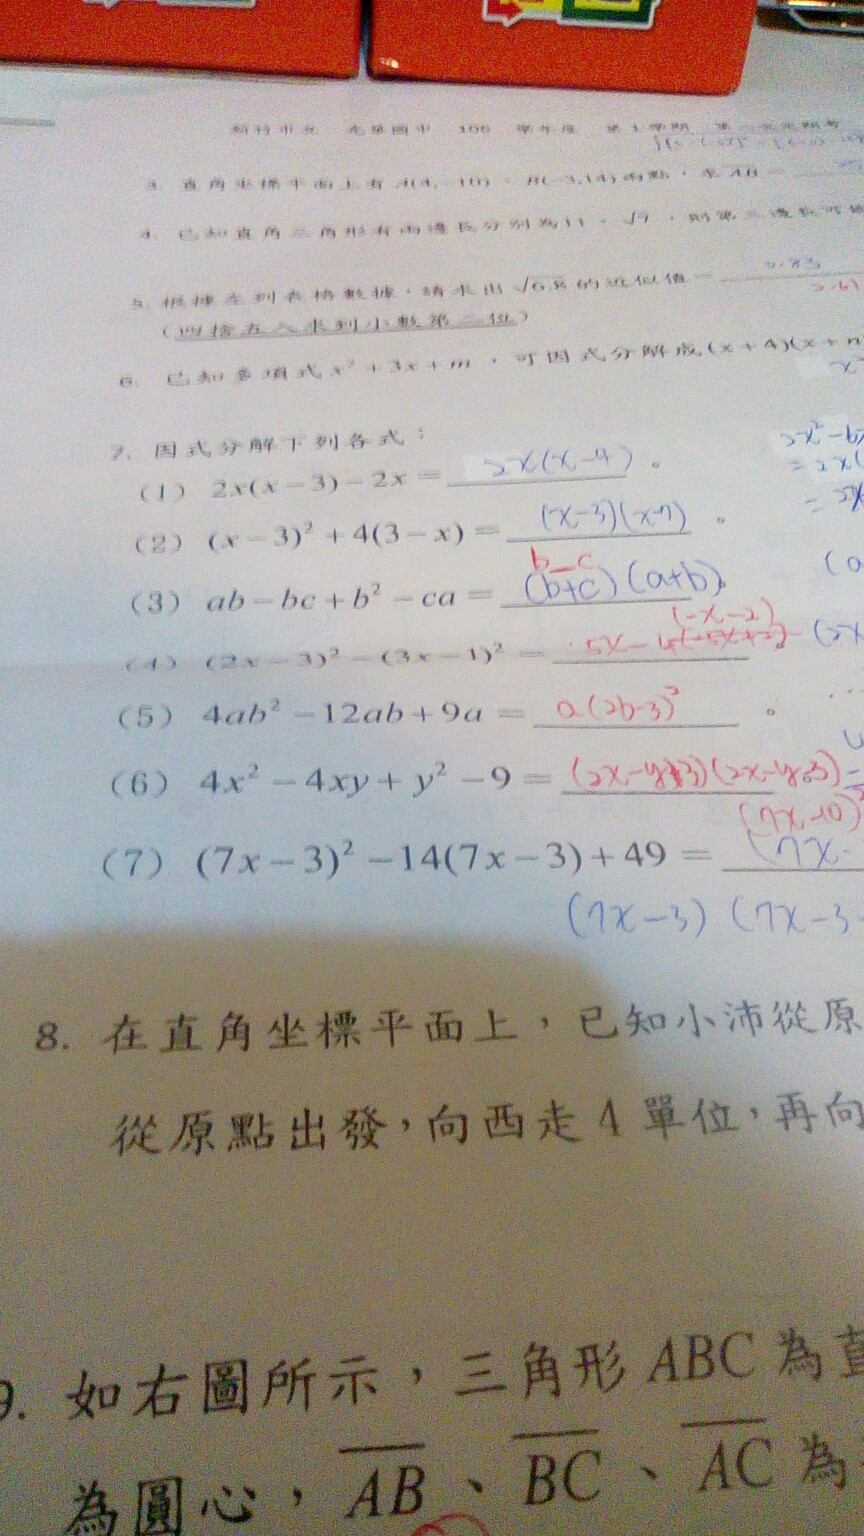 新竹市立 光華國中 106 學年度 第1學期 第二次定期考
3. 直角坐標平面上有 A(4, -10)、B(-3,14)兩點，則 AB =
4. 已知直角三角形有兩邊長分別為11、√7，則第三邊長可
5. 根據左列表格數據，請求出 √6.8 的近似值= 2.83
2.61
(四捨五入求到小數第二位)
6. 已知多項式 x² + 3x + m，可因式分解成(x + 4)(x + n
7. 因式分解下列各式：
(1) 2x(x − 3) − 2x = 2x(x−4)。
(2) (x − 3)² + 4(3 − x) = (x−3)(x−7)。
b−c
(3) ab − bc + b² − ca = (b+c)(a+b)
(−x−2)
(4) (2x − 3)² − (3x − 1)² = 5x−4
(5) 4ab² − 12ab + 9a = a(2b−3)²。
(6) 4x² − 4xy + y² − 9 = (2x−y+3)(2x−y−3)
(7x−10)²
(7) (7x − 3)² − 14(7x − 3) + 49 = (7x-
(7x−3)(7x−3-
8. 在直角坐標平面上，已知小沛從原
從原點出發，向西走4單位，再向
9. 如右圖所示，三角形ABC為直
為圓心，AB、BC、AC為